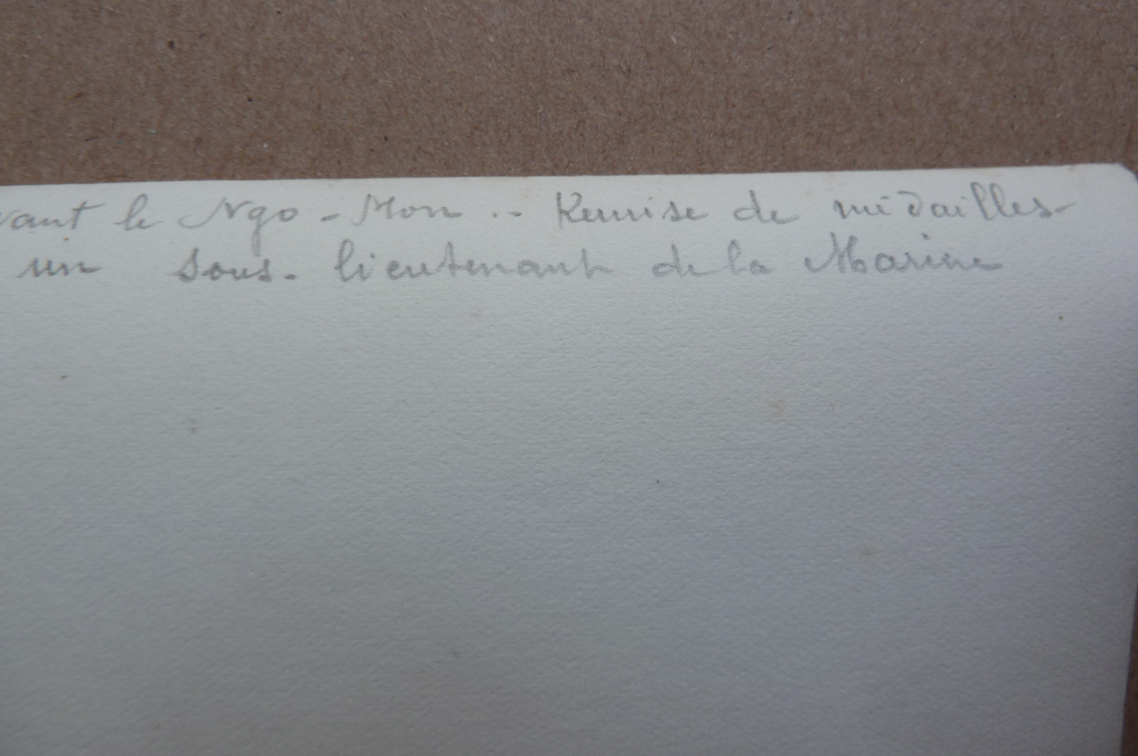 vant le Ngo-Mon .. Remise de médailles-
un sous-lieutenant de la Marine